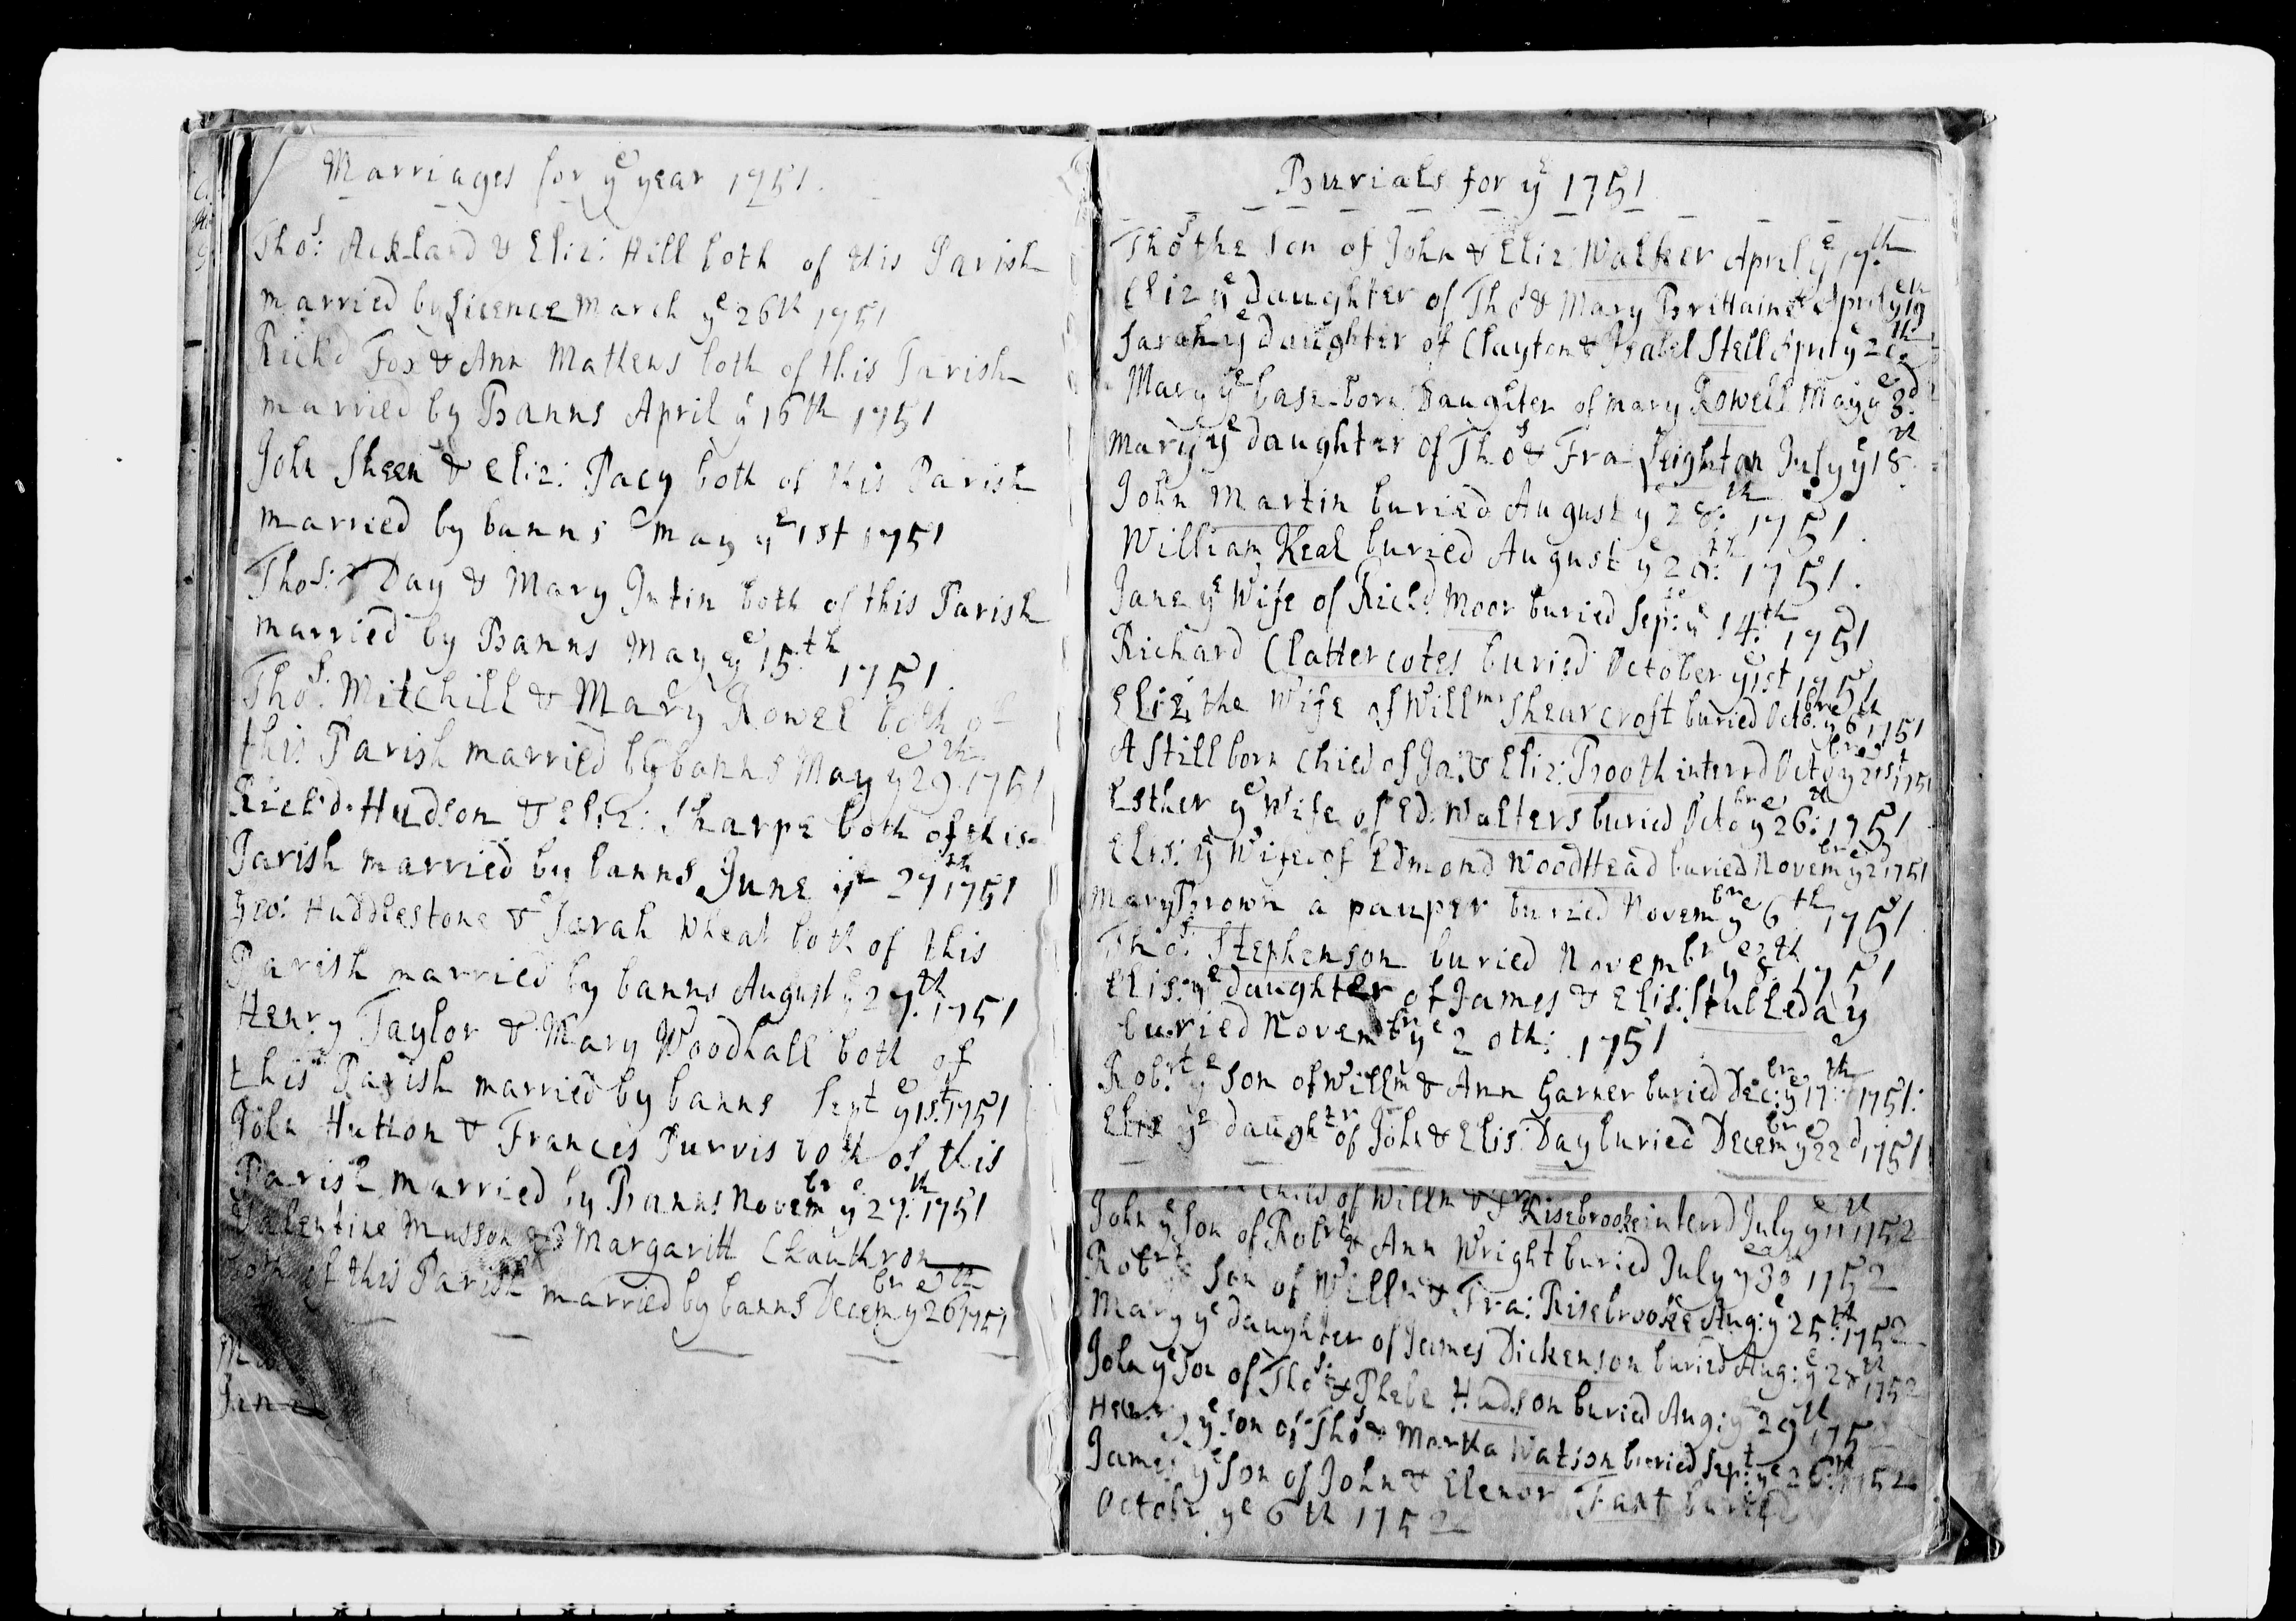 Marriages for ye year 1751.
Thos: Ackland & Eliz: Hill both of this Parish
married by Licence March ye 26th 1751
Richd Fox & Ann Mathews both of this Parish
married by Banns April ye 16th 1751
John Sheen & Eliz: Pacy both of this Parish
married by banns May ye 1st 1751
Thos: Day & Mary Intin both of this Parish
married by Banns May ye 15th 1751.
Thos: Mitchill & Mary Rowel both of
this Parish married by banns May ye 29th 1751
Richd. Hudson & Eliz: Sharpe both of this
Parish married by banns June ye 27th 1751
Geo: Huddlestone & Sarah Wheat both of this
Parish married by banns August ye 27th 1751
Henry Taylor & Mary Woodhall both of
this Parish married by banns Sept ye 1st 1751
John Hutton & Frances Purvis both of this
Parish married by Banns Novembr ye 27th 1751
Valentine Musson & Margaritt Clauthron
both of this Parish married by banns Decembr ye 26th 1751
Burials for ye 1751
Thos the Son of John & Eliz: Walker April ye 17th
Eliz ye daughter of Thos & Mary Brettaine April ye 19
Sarah ye daughter of Clayton & Isabel Stell April ye 20th
Mary ye base-born Daughter of Mary Rowell May ye 3d
Mary ye daughter of Thos & Fra Leighton July ye 18th
John Martin buried August ye 28th 1751.
William Keal buried August ye 1751.
Jane ye Wife of Richd Moor buried Sep: ye 14th 1751
Richard Clattercotes buried October ye 1st 1751
Eliz: the Wife of Willm Shearcroft buried Octobr ye 6th 1751
A Still born Child of Ja: & Eliz: Booth interrd Octobr ye 21st 1751
Esther ye Wife of Ed: Walters buried Octobr ye 26th 1751
Elis: ye Wife of Edmond WoodHead buried Novembr ye 2d 1751
Mary Brown a pauper buried Novembr ye 6th 1751
Thos: Stephenson buried Novembr ye 8th 1751
Elis: ye daughter of James & Elis: Stubleday
buried Novembr ye 20th: 1751
Robrt ye Son of Willm & Ann Garner buried Decbr: ye 17th 1751:
Eliz ye daughtr of John & Elis: Day buried Decembr ye 22d 1751
Child of Willm & Fra Risebrooke interrd July ye 11th 1752
John ye Son of Robrt & Ann Wright buried July ye 3d 1752
Robrt ye Son of Willm & Fra: Risebrooke Aug: ye 25th 1752
Mary ye daughter of James Dickenson buried Aug: ye 28th 1752
John ye Son of Thos: & Phebe Hudson buried Aug: ye 29th 1752
Henry ye Son of Thos & Martha Watson buried Sept: ye 26th 1752
James ye Son of John & Elenor Fant buried
Octobr ye 6th 1752